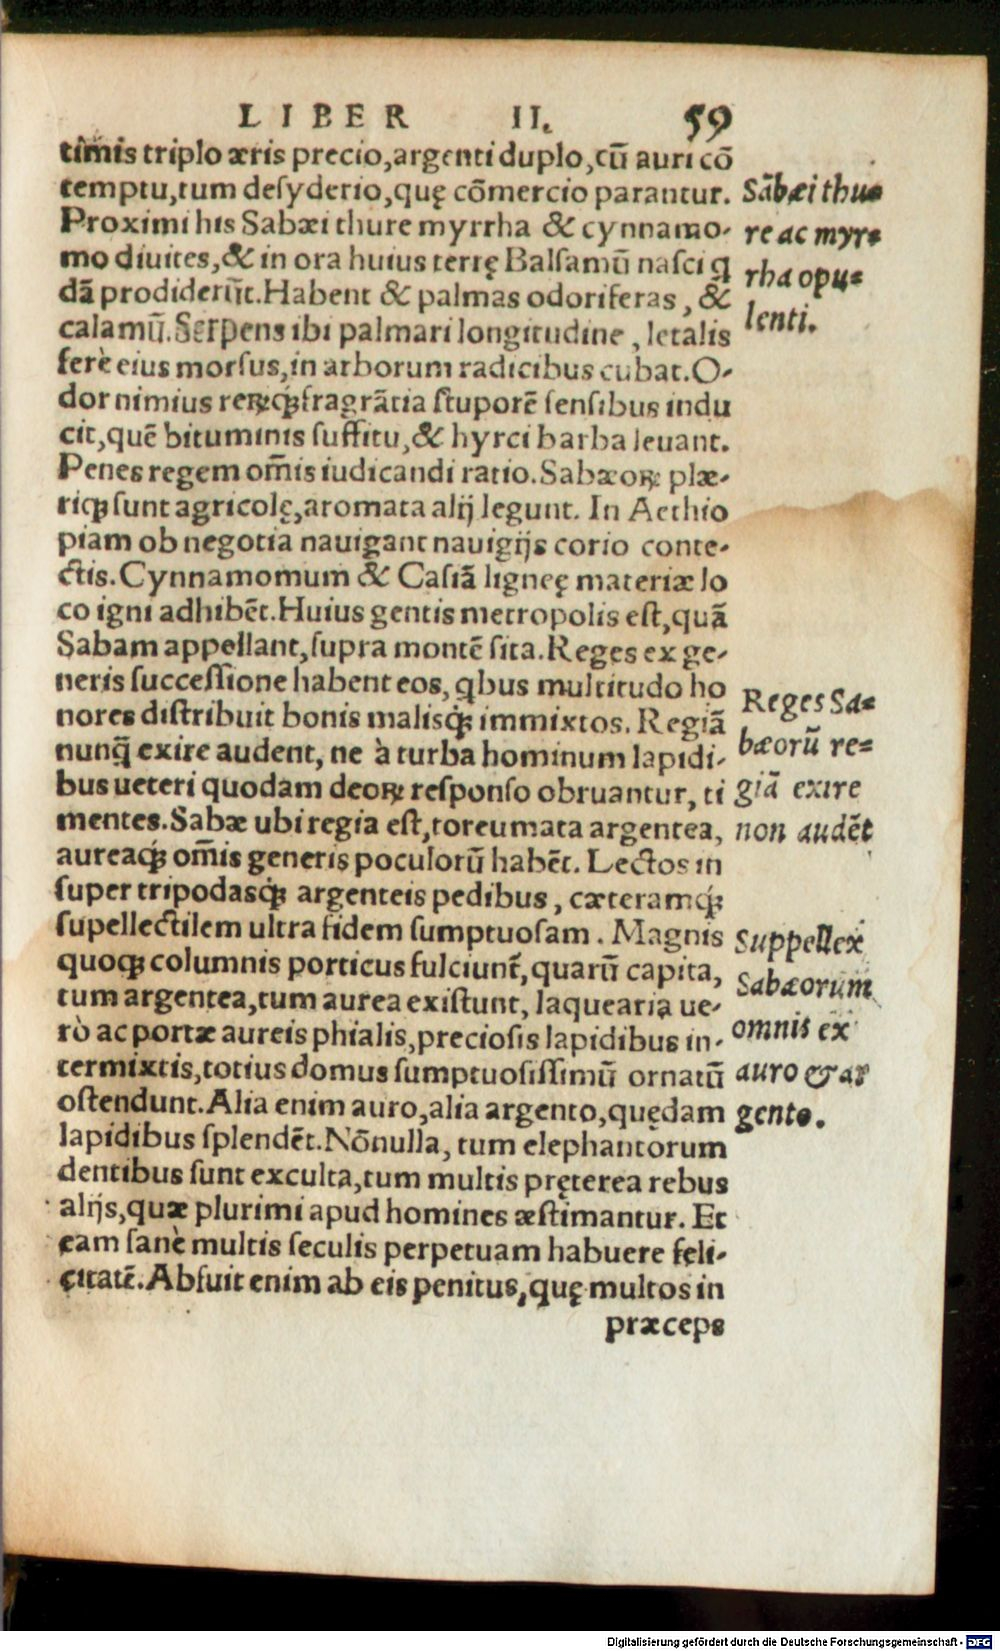 LIBER II. 59
timis triplo æris precio, argenti duplo, cū auri cō
temptu, tum desyderio, quę cōmercio parantur.
Proximi his Sabæi thure myrrha & cynnamo-
mo diuites, & in ora huius terrę Balsamū nasci q
dā prodiderūt. Habent & palmas odoriferas, &
calamū. Serpens ibi palmari longitudine, letalis
ferè eius morsus, in arborum radicibus cubat. O-
dor nimius reꝝꝗ fragrātia stuporē sensibus indu
cit, quē bituminis suffitu, & hyrci barba leuant.
Penes regem om̄is iudicandi ratio. Sabæoꝝ plæ-
riꝗ sunt agricolę, aromata alij legunt. In Aethio
piam ob negotia nauigant nauigijs corio conte-
ctis. Cynnamomum & Casiā ligneę materiæ lo
co igni adhibēt. Huius gentis metropolis est, quā
Sabam appellant, supra montē sita. Reges ex ge-
neris successione habent eos, qbus multitudo ho
nores distribuit bonis malisꝗ immixtos. Regiā
nunq̄ exire audent, ne à turba hominum lapidi-
bus ueteri quodam deoꝝ responso obruantur, ti
mentes. Sabæ ubi regia est, toreumata argentea,
aureaꝗ om̄is generis poculorū habēt. Lectos in
super tripodasꝗ argenteis pedibus, cæteramꝗ
supellectilem ultra fidem sumptuosam. Magnis
quoꝗ columnis porticus fulciunt̄, quarū capita,
tum argentea, tum aurea existunt, laquearia ue-
rò ac portæ aureis phialis, preciosis lapidibus in-
termixtis, totius domus sumptuosissimū ornatū
ostendunt. Alia enim auro, alia argento, quędam
lapidibus splendēt. Nōnulla, tum elephantorum
dentibus sunt exculta, tum multis pręterea rebus
alijs, quæ plurimi apud homines æstimantur. Et
eam sanè multis seculis perpetuam habuere feli-
citatē. Abfuit enim ab eis penitus, quę multos in
præceps
Sābæi thu=
re ac myr=
rha opu=
lenti.
Reges Sa=
bæorū re=
giā exire
non audēt
Suppellex
Sabæorum
omnis ex
auro & ar
gento.
Digitalisierung gefördert durch die Deutsche Forschungsgemeinschaft - DFG